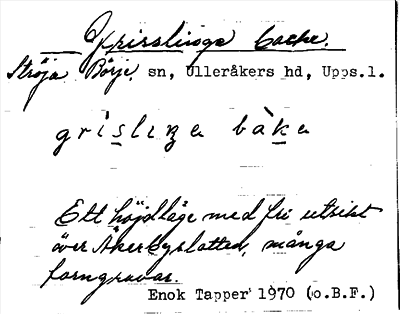 Grisslinge backe.
Ströja Börje sn, Ulleråkers hd, Upps.l.
grìsliŋe bàke
Ett höjdläge med fri utsikt
över Åkerbyslätten, många
forngravar.
Enok Tapper 1970 (o.B.F.)